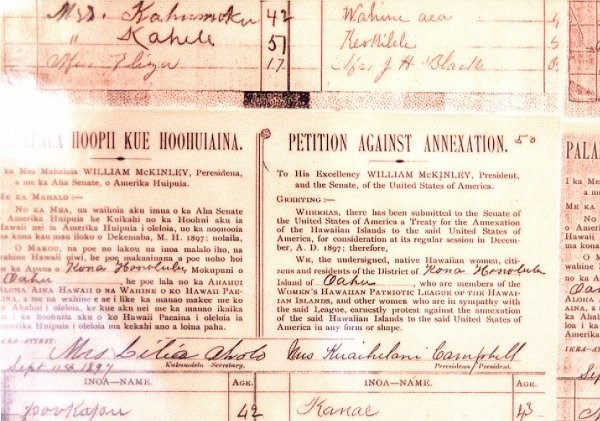 Mrs. Kahumoku 42 Wahine aea
" Kahele 51 Keokilele
Mrs Eliza 17 Mrs J H Black
PALAPALA HOOPII KUE HOOHUIAINA.
ka Mea Mahaloia WILLIAM McKINLEY, Peresidena,
a me ka Aha Senate, o Amerika Huipuia.
ME KA MAHALO:—
No KA MEA, ua waihoia aku imua o ka Aha Senate
Amerika Huipuia he Kuikahi no ka Hoohui aku ia
Hawaii nei ia Amerika Huipuia i oleloia, no ka noonooia
kona kau mau iloko o Dekemaba, M. H. 1897; nolaila,
O MAKOU, na poe no lakou na inoa malalo iho, na
wahine Hawaii oiwi, he poe makaainana a poe noho hoi
ka Apana o Kona Honolulu, Mokupuni o
Oahu, he poe lala no ka AHAHUI
ALOHA AINA HAWAII O NA WAHINE O KO HAWAII PAE-
AINA, a me na wahine e ae i like ka manao makee me ko
Ahahui i oleloia, ke kue aku nei me ka manao ikaika
ka hoohuiia aku o ko Hawaii Paeaina i oleloia ia
Amerika Huipuia i oleloia ma kekahi ano a loina paha.
IKEA-ATTEST:
Mrs Lilia Aholo
Sept 11th 1897
Kakauolelo Secretary.
INOA—NAME. AGE.
42
PETITION AGAINST ANNEXATION. 50
To His Excellency WILLIAM McKINLEY, President,
and the Senate, of the United States of America.
GREETING:—
WHEREAS, there has been submitted to the Senate of
the United States of America a Treaty for the Annexation
of the Hawaiian Islands to the said United States of
America, for consideration at its regular session in Decem-
ber, A. D. 1897; therefore,
WE, the undersigned, native Hawaiian women, citi-
zens and residents of the District of Kona Honolulu
Island of Oahu, who are members of the
WOMEN'S HAWAIIAN PATRIOTIC LEAGUE OF THE HAWAI-
IAN ISLANDS, and other women who are in sympathy with
the said League, earnestly protest against the annexation
of the said Hawaiian Islands to the said United States of
America in any form or shape.
Mrs Kuaihelani Campbell
Peresidena President.
INOA—NAME. AGE.
Kanae 43
PALA
I ka Mea
a me
ME KA
IKEA-ATT